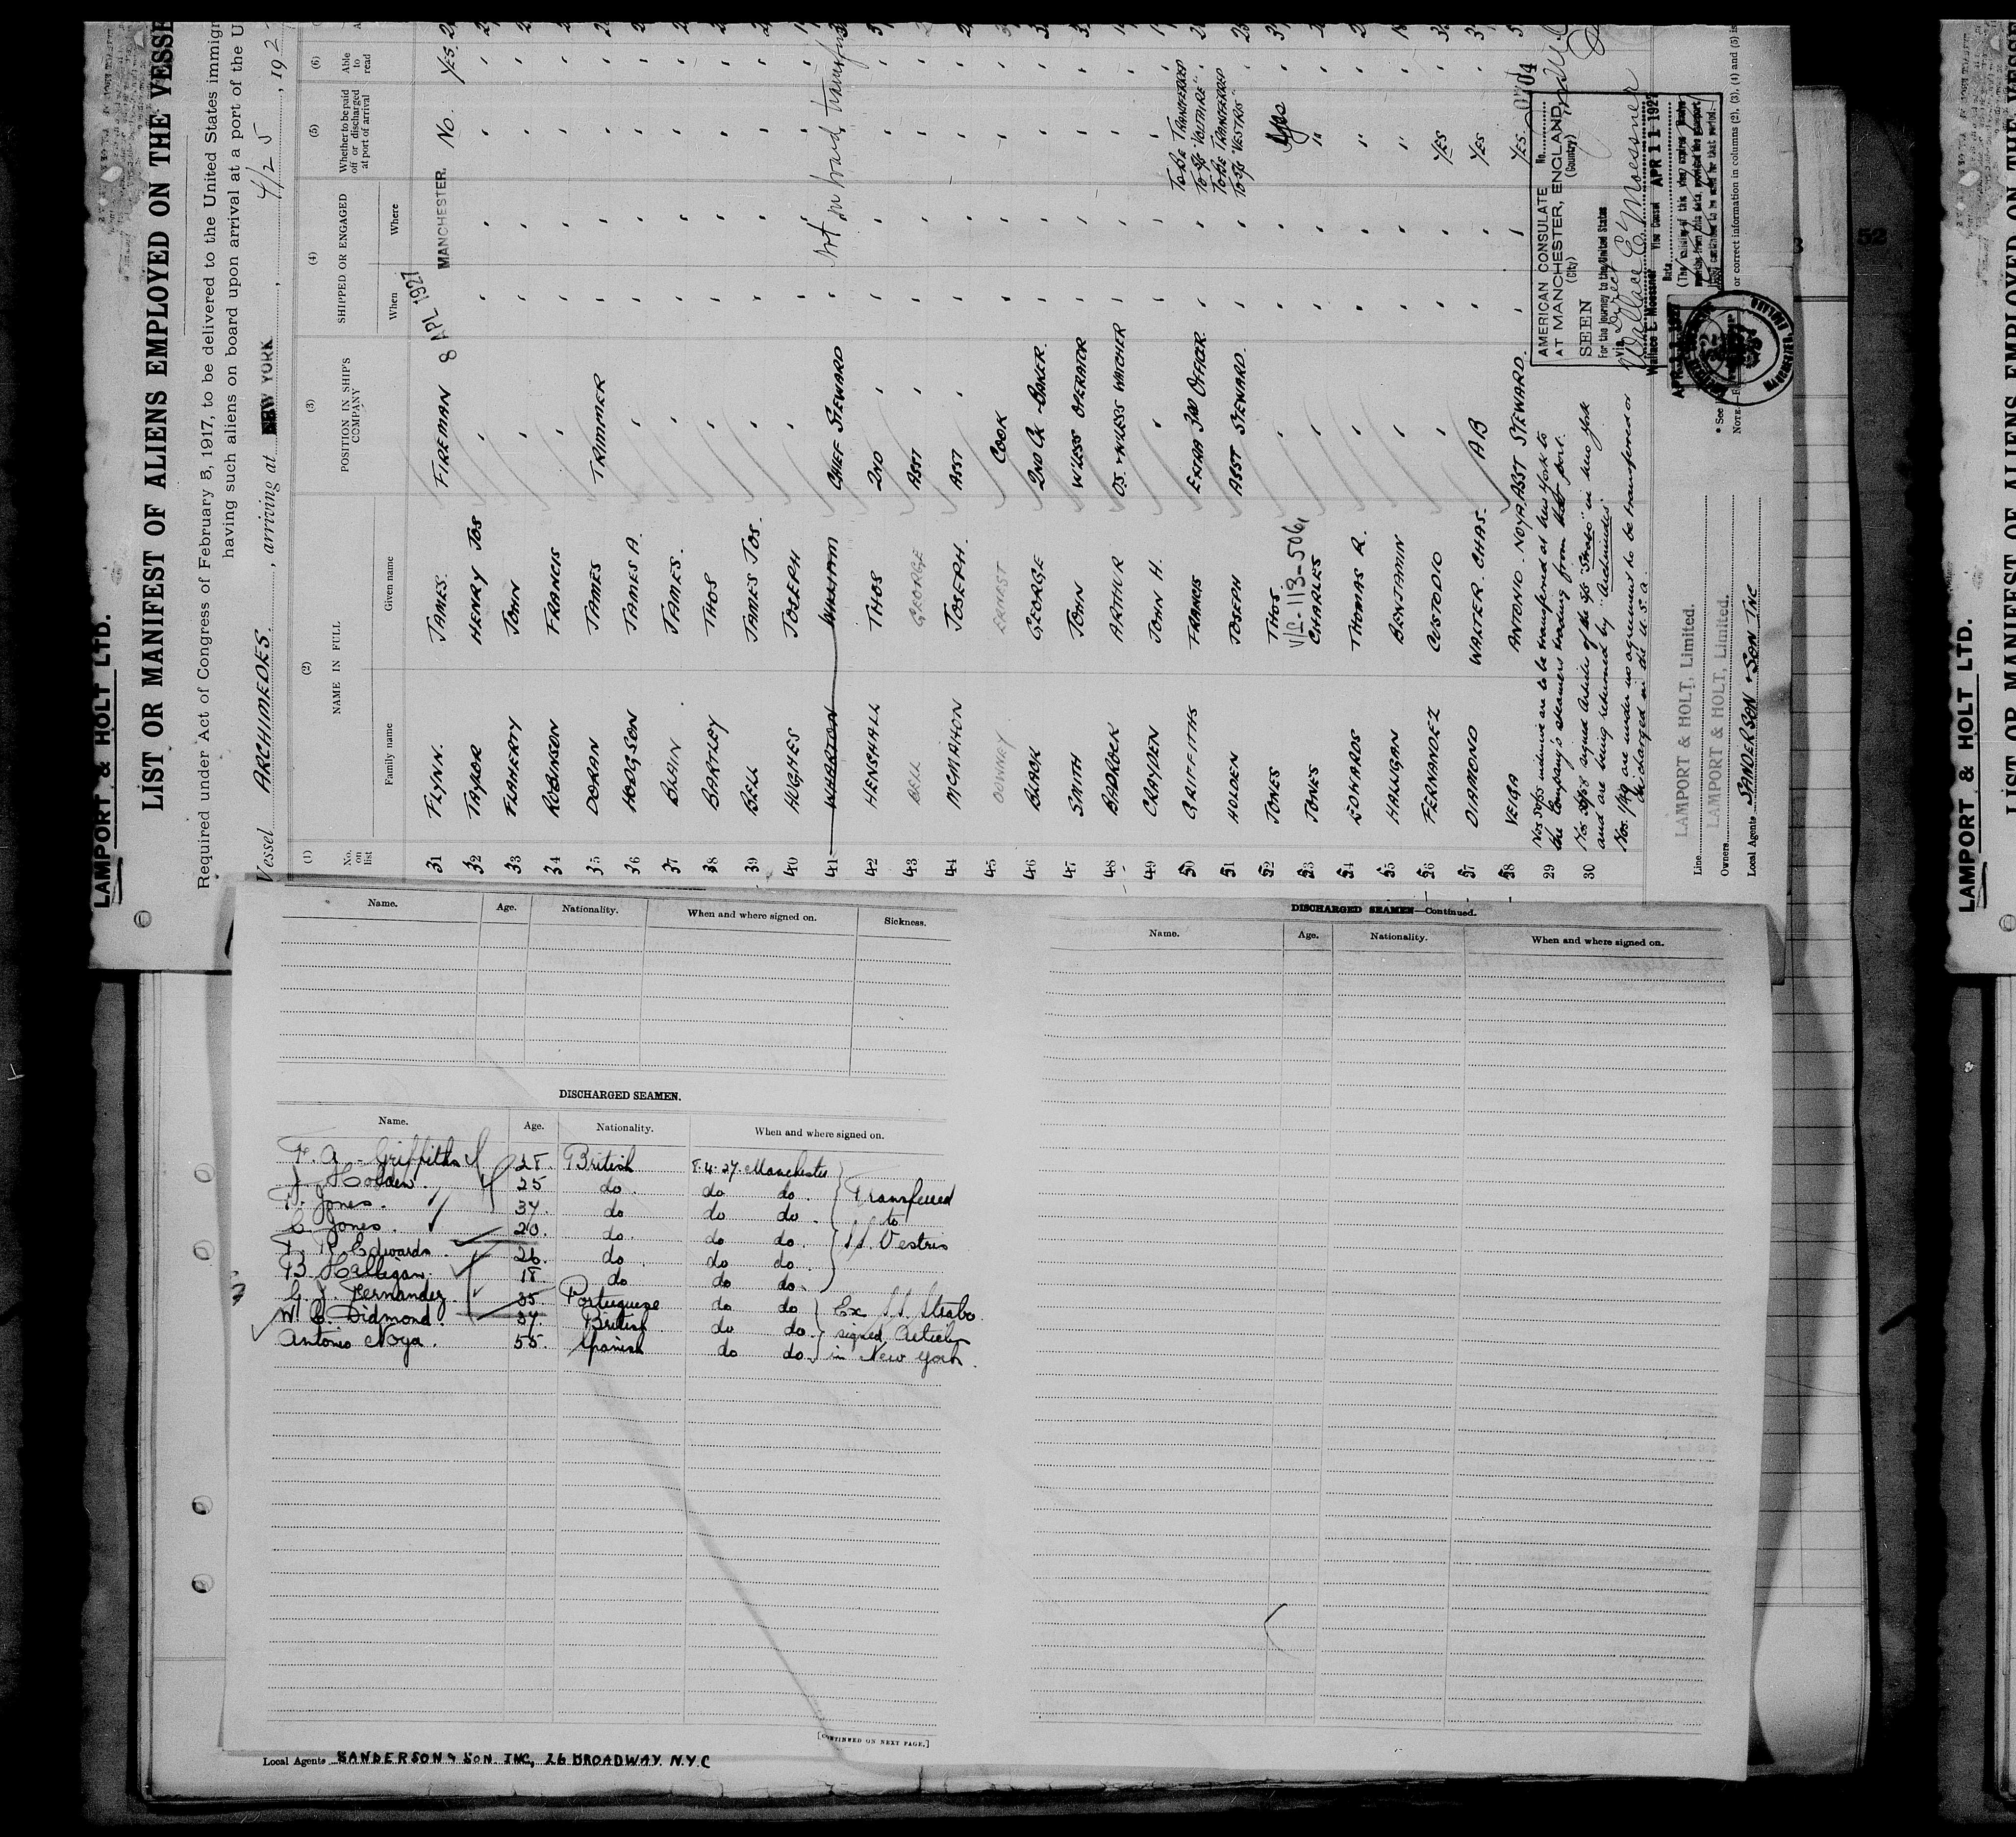 LAMPORT & HOLT LTD.
LIST OR MANIFEST OF ALIENS EMPLOYED ON THE VESSE
Required under Act of Congress of February 5, 1917, to be delivered to the United States immigr
having such aliens on board upon arrival at a port of the U
Vessel ARCHIMEDES. , arriving at NEW YORK , 4/25 , 192
(1) (2) (3) (4) (5) (6)
No. on list NAME IN FULL POSITION IN SHIP'S COMPANY SHIPPED OR ENGAGED Whether to be paid off or discharged at port of arrival Able to read
Family name Given name When Where
31 FLYNN. JAMES. FIREMAN 8 APL 1927 MANCHESTER. NO. YES.
32 TAYLOR HENRY JOS " " " " "
33 FLAHERTY JOHN " " " " "
34 ROBINSON FRANCIS " " " " "
35 DORAN JAMES TRIMMER " " " "
36 HODGSON JAMES A. " " " " "
37 BLAIN JAMES. " " " " "
38 BARTLEY THOS " " " " "
39 BELL JAMES JOS. " " " " "
40 HUGHES JOSEPH " " " " "
41 WHARTON WILLIAM CHIEF STEWARD Not on board,
42 HENSHALL THOS 2ND " " " " "
43 BELL GEORGE ASST " " " " "
44 McMAHON JOSEPH. ASST " " " " "
45 DOWNEY ERNEST COOK " " " "
46 BLACK GEORGE 2ND CK & BAKER. " " " "
47 SMITH JOHN W'LESS OPERATOR " " " "
48 BADROCK ARTHUR O.S. & W'LESS WATCHER " " " "
49 CRAYDEN JOHN H. " " " " "
50 GRIFFITHS FRANCIS EXTRA 3RD OFFICER. " " TO BE TRANSFERRED TO S/S "VOLTAIRE" "
51 HOLDEN JOSEPH ASST STEWARD. " " TO BE TRANSFERRED TO S/S "VESTRIS" "
52 JONES THOS " " " Yes "
V/L-113-506
53 JONES CHARLES " " " " "
54 EDWARDS THOMAS R. " " " " "
55 HALLIGAN BENJAMIN " " " " "
56 FERNANDEZ CUSTODIO " " " YES "
57 DIAMOND WALTER. CHAS. A B " " YES "
58 VEIGA ANTONIO. NOYA ASST STEWARD. " " YES. "
29 Nos 50/55 inclusive are to be transferred at New York to
the Company's steamers trading from that port.
30 Nos 56/58 signed Articles of the s/s "Strabo" in New York
and are being returned by "Archimedes".
Nos. 1/49 are under no agreement to be transferred or
discharged in the U.S.A.
AMERICAN CONSULATE No.
AT MANCHESTER, ENGLAND
(City) (Country)
SEEN
For the Journey to the United States
Via Direct
Wallace E. Moessner
Wallace E. Moessner Vice Consul APR 11 1927
Date
or correct information in columns (2), (3), (4) and (5) is
Line LAMPORT & HOLT, Limited.
Owners LAMPORT & HOLT, Limited.
Local Agents SANDERSON & SON INC
52
Name. Age. Nationality. When and where signed on. Sickness.
DISCHARGED SEAMEN.
Name. Age. Nationality. When and where signed on.
F. A. Griffiths 28. British 8.4.27. Manchester
J. Holden. 25 do. do do. Transferred
T. Jones. 34 do do do. to
C. Jones. 20. do. do do. S.S. Vestris
T. R. Edwards 26 do. do do.
B. Halligan. 18 do do do.
C. J. Fernandez 35 Portuguese do do Ex S.S. Strabo
W. C. Didmond. 37 British do do. signed Articles
Antonio Noya. 55. Spanish do do. in New York.
[CONTINUED ON NEXT PAGE.]
Local Agents SANDERSON & SON INC, 26 BROADWAY. N.Y.C
DISCHARGED SEAMEN—Continued.
Name. Age. Nationality. When and where signed on.
LAMPORT & HOLT LTD.
LIST OR MANIFEST OF ALIENS EMPLOYED ON THE VESSE